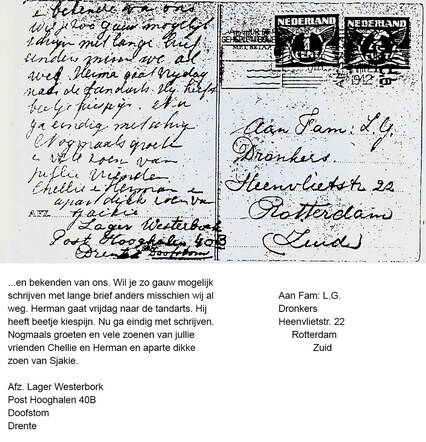 bekende van ons
wij zoo gauw mogelijk
schrijven met lange brief
anders misschien we al
weg. Herma gaat vrijdag
naar de tandarts. Hij heeft
beetje kiespijn. Nu
ga eindig met schrij
Nogmaals groeten
e vele zoen van
jullie vrienden
Chellie e Herman e
apart dikke zoen van
Sjackie
AFZ. Lager Westerbork
Post Hooghalen 40B
Drente Doofstom
NEDERLAND
NEDERLAND
1912
Aan Fam: L.G.
Dronkers
Heenvlietstr 22
Rotterdam
Zuid
...en bekenden van ons. Wil je zo gauw mogelijk
schrijven met lange brief anders misschien wij al
weg. Herman gaat vrijdag naar de tandarts. Hij
heeft beetje kiespijn. Nu ga eindig met schrijven.
Nogmaals groeten en vele zoenen van jullie
vrienden Chellie en Herman en aparte dikke
zoen van Sjakie.
Afz. Lager Westerbork
Post Hooghalen 40B
Doofstom
Drente
Aan Fam: L.G.
Dronkers
Heenvlietstr. 22
Rotterdam
Zuid